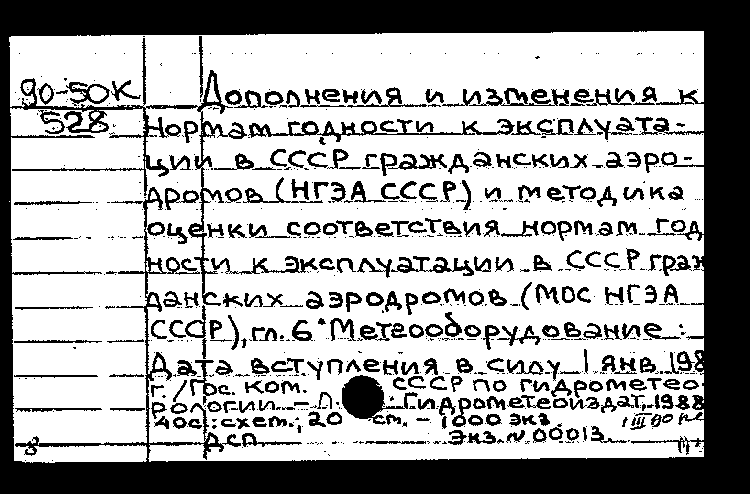 90-50К Дополнения и изменения к
528 Нормам годности к эксплуата-
ции в СССР гражданских аэро-
дромов (НГЭА СССР) и методика
оценки соответствия нормам год
ности к эксплуатации в СССР граж
данских аэродромов (МОС НГЭА
СССР), гл. 6 "Метеооборудование :
Дата вступления в силу 1 янв 198
г. /Гос. ком. СССР по гидрометео-
рологии. – Л. : Гидрометеоиздат, 1988
40с.: схем.; 20 см. – 1000 экз.
ДСП. Экз. № 00013.
8